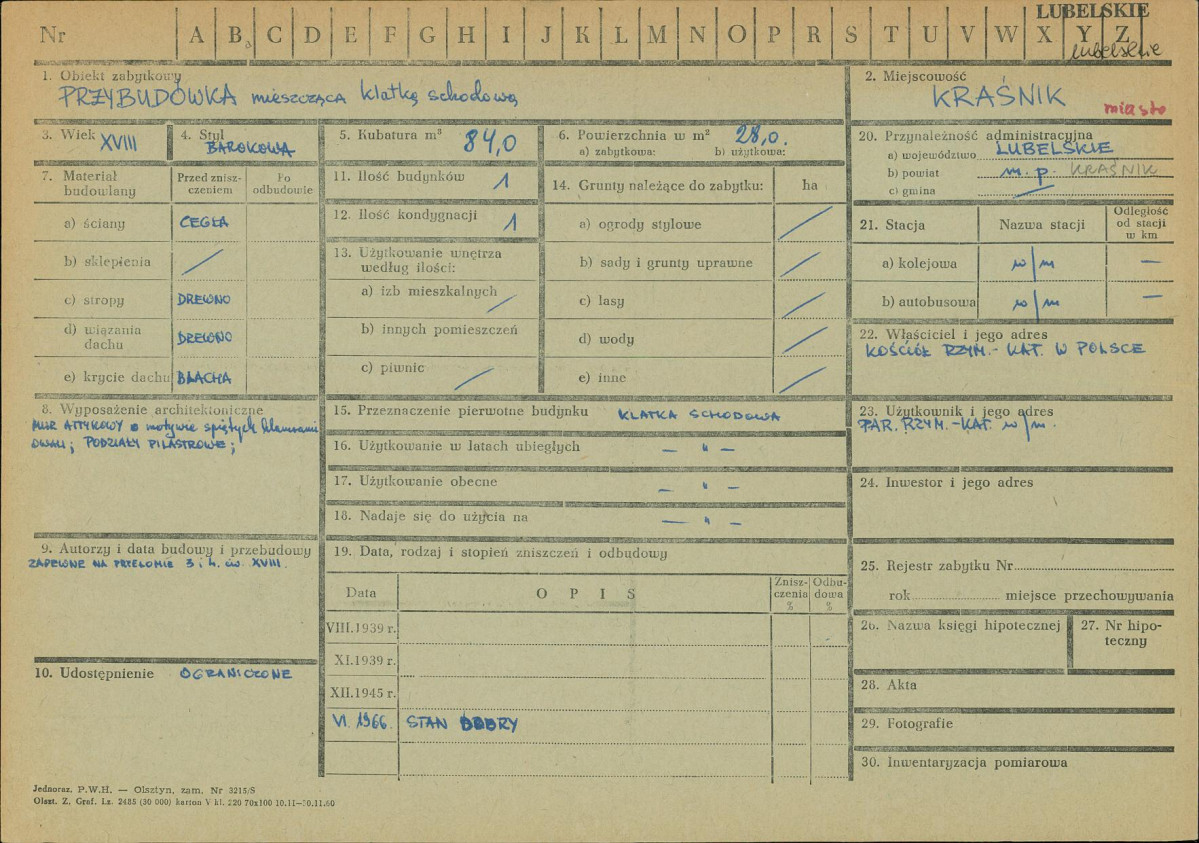 LUBELSKIE
Nr A B C D E F G H I J K L M N O P R S T U V W X Y Z
lubelskie
1. Obiekt zabytkowy
PRZYBUDÓWKA mieszcząca klatkę schodową
2. Miejscowość
KRAŚNIK
miasto
3. Wiek XVIII
4. Styl
BAROKOWA
5. Kubatura m³ 84,0
6. Powierzchnia w m² 28,0.
a) zabytkowa: b) użytkowa:
7. Materiał budowlany
Przed zniszczeniem
Po odbudowie
a) ściany CEGŁA
b) sklepienia /
c) stropy DREWNO
d) wiązania dachu DREWNO
e) krycie dachu BLACHA
8. Wyposażenie architektoniczne
MUR ATTYKOWY o motywie spiętych klamrami
OWALI; PODZIAŁY PILASTROWE;
9. Autorzy i data budowy i przebudowy
ZAPEWNE NA PRZEŁOMIE 3 i 4. ćw. XVIII.
10. Udostępnienie OGRANICZONE
11. Ilość budynków 1
12. Ilość kondygnacji 1
13. Użytkowanie wnętrza
według ilości:
a) izb mieszkalnych /
b) innych pomieszczeń
c) piwnic /
14. Grunty należące do zabytku: ha
a) ogrody stylowe /
b) sady i grunty uprawne /
c) lasy /
d) wody /
e) inne /
15. Przeznaczenie pierwotne budynku KLATKA SCHODOWA
16. Użytkowanie w latach ubiegłych — " —
17. Użytkowanie obecne — " —
18. Nadaje się do użycia na — " —
19. Data, rodzaj i stopień zniszczeń i odbudowy
Data
O P I S
Zniszczenia %
Odbudowa %
VIII.1939 r.
XI.1939 r.
XII.1945 r.
VI. 1966. STAN DOBRY
20. Przynależność administracyjna
a) województwo LUBELSKIE
b) powiat m. p. KRAŚNIK
c) gmina /
21. Stacja
Nazwa stacji
Odległość od stacji w km
a) kolejowa w/m —
b) autobusowa w/m —
22. Właściciel i jego adres
KOŚCIÓŁ RZYM.-KAT. W POLSCE
23. Użytkownik i jego adres
PAR. RZYM.-KAT. w/m.
24. Inwestor i jego adres
25. Rejestr zabytku Nr
rok miejsce przechowywania
26. Nazwa księgi hipotecznej
27. Nr hipoteczny
28. Akta
29. Fotografie
30. Inwentaryzacja pomiarowa
Jednoraz. P.W.H. — Olsztyn, zam. Nr 3215/S
Olszt. Z. Graf. Lz. 2485 (30 000) karton V kl. 220 70x100 10.11—30.11.60